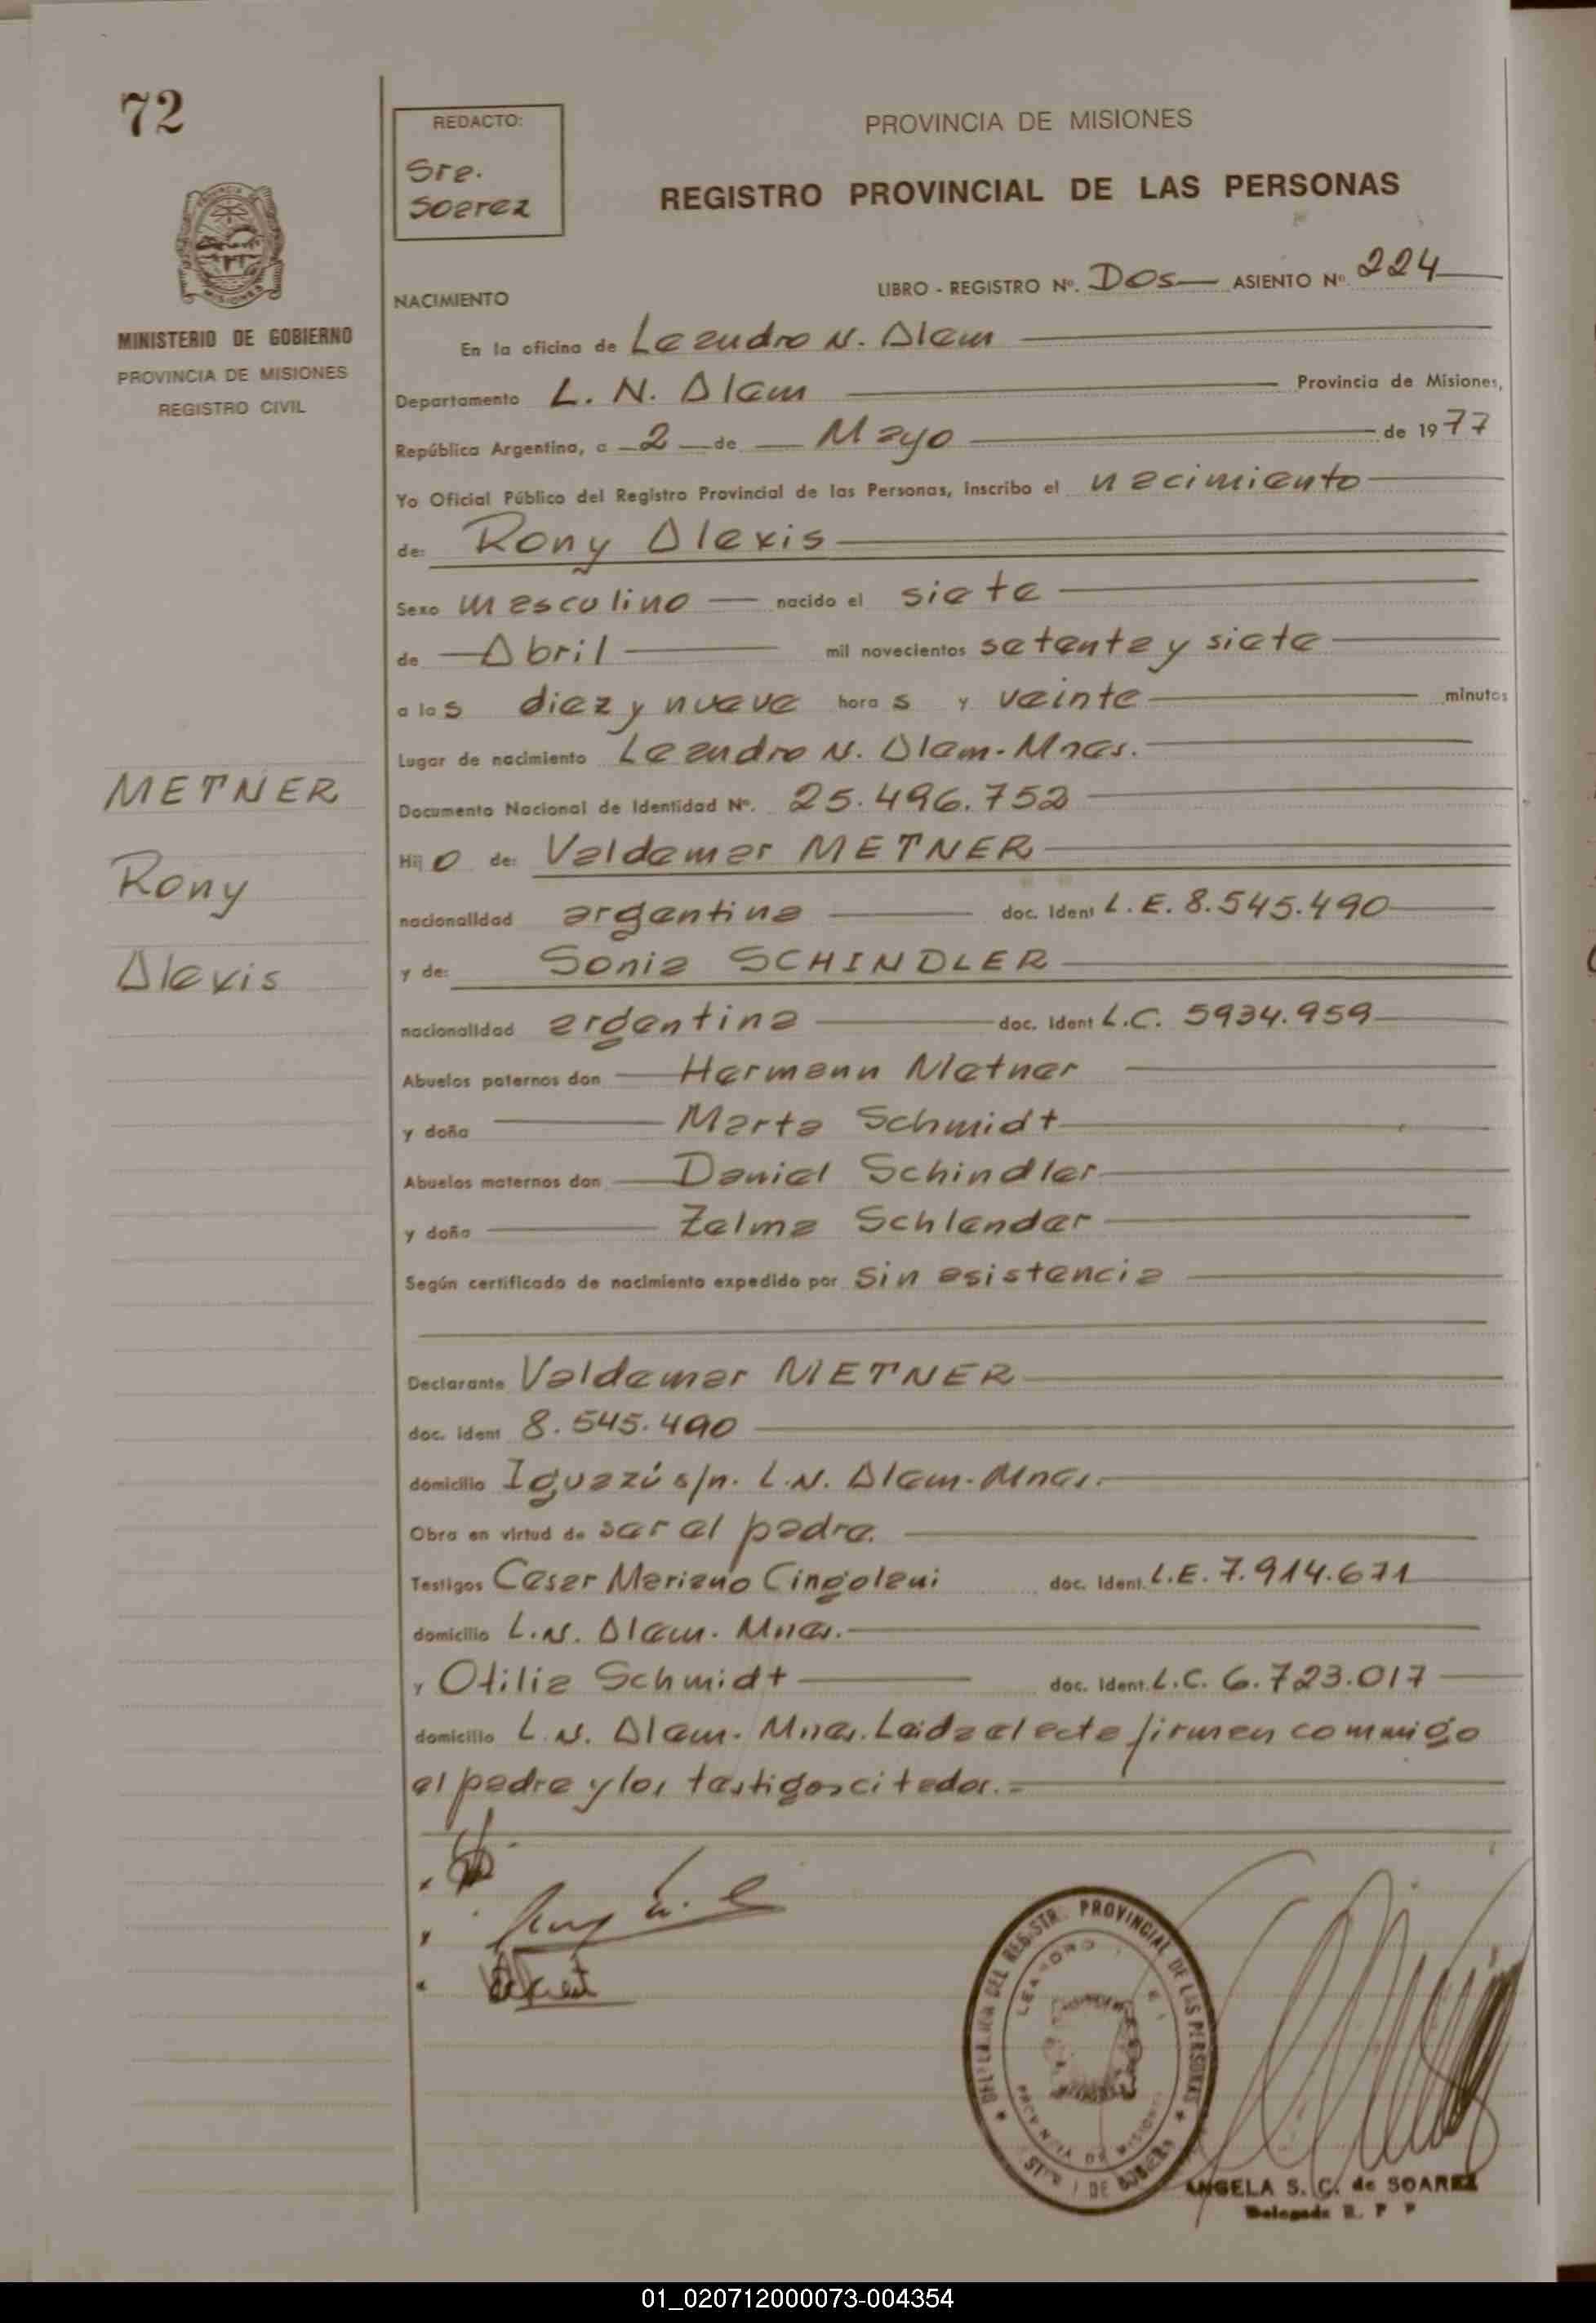 72
REDACTO:
Sra.
Soarez
PROVINCIA DE MISIONES
REGISTRO PROVINCIAL DE LAS PERSONAS
MINISTERIO DE GOBIERNO
PROVINCIA DE MISIONES
REGISTRO CIVIL
NACIMIENTO
LIBRO - REGISTRO Nº. Dos ASIENTO Nº 224
En la oficina de Leandro N. Alem
Departamento L. N. Alem Provincia de Misiones,
República Argentina, a 2 de Mayo de 1977
Yo Oficial Público del Registro Provincial de las Personas, inscribo el nacimiento
de: Rony Alexis
Sexo masculino nacido el siete
de Abril mil novecientos setenta y siete
a las diez y nueve horas y veinte minutos
Lugar de nacimiento Leandro N. Alem-Mnes.
Documento Nacional de Identidad Nº. 25.496.752
Hijo de: Valdemar METNER
nacionalidad argentina doc. Ident L.E. 8.545.490
y de: Sonia SCHINDLER
nacionalidad argentina doc. Ident L.C. 5934.959
Abuelos paternos don Hermann Metner
y doña Marta Schmidt
Abuelos maternos don Daniel Schindler
y doña Zelma Schlender
Según certificado de nacimiento expedido por sin asistencia
METNER
Rony
Alexis
Declarante Valdemar METNER
doc. ident 8.545.490
domicilio Iguazú s/n. L.N. Alem-Mnes.
Obra en virtud de ser el padre.
Testigos Cesar Mariano Cingolani doc. Ident. L.E. 7.914.671
domicilio L.N. Alem. Mnes.
y Otilia Schmidt doc. Ident. L.C. 6.723.017
domicilio L.N. Alem. Mnes. Leida el acta firman commigo
el padre y los testigos citados.-
REGISTR. PROVINCIAL DE LAS PERSONAS
LEANDRO
PROVINCIA DE MISIONES
ANGELA S. C. de SOAREZ
Delegada R. P P
01_020712000073-004354